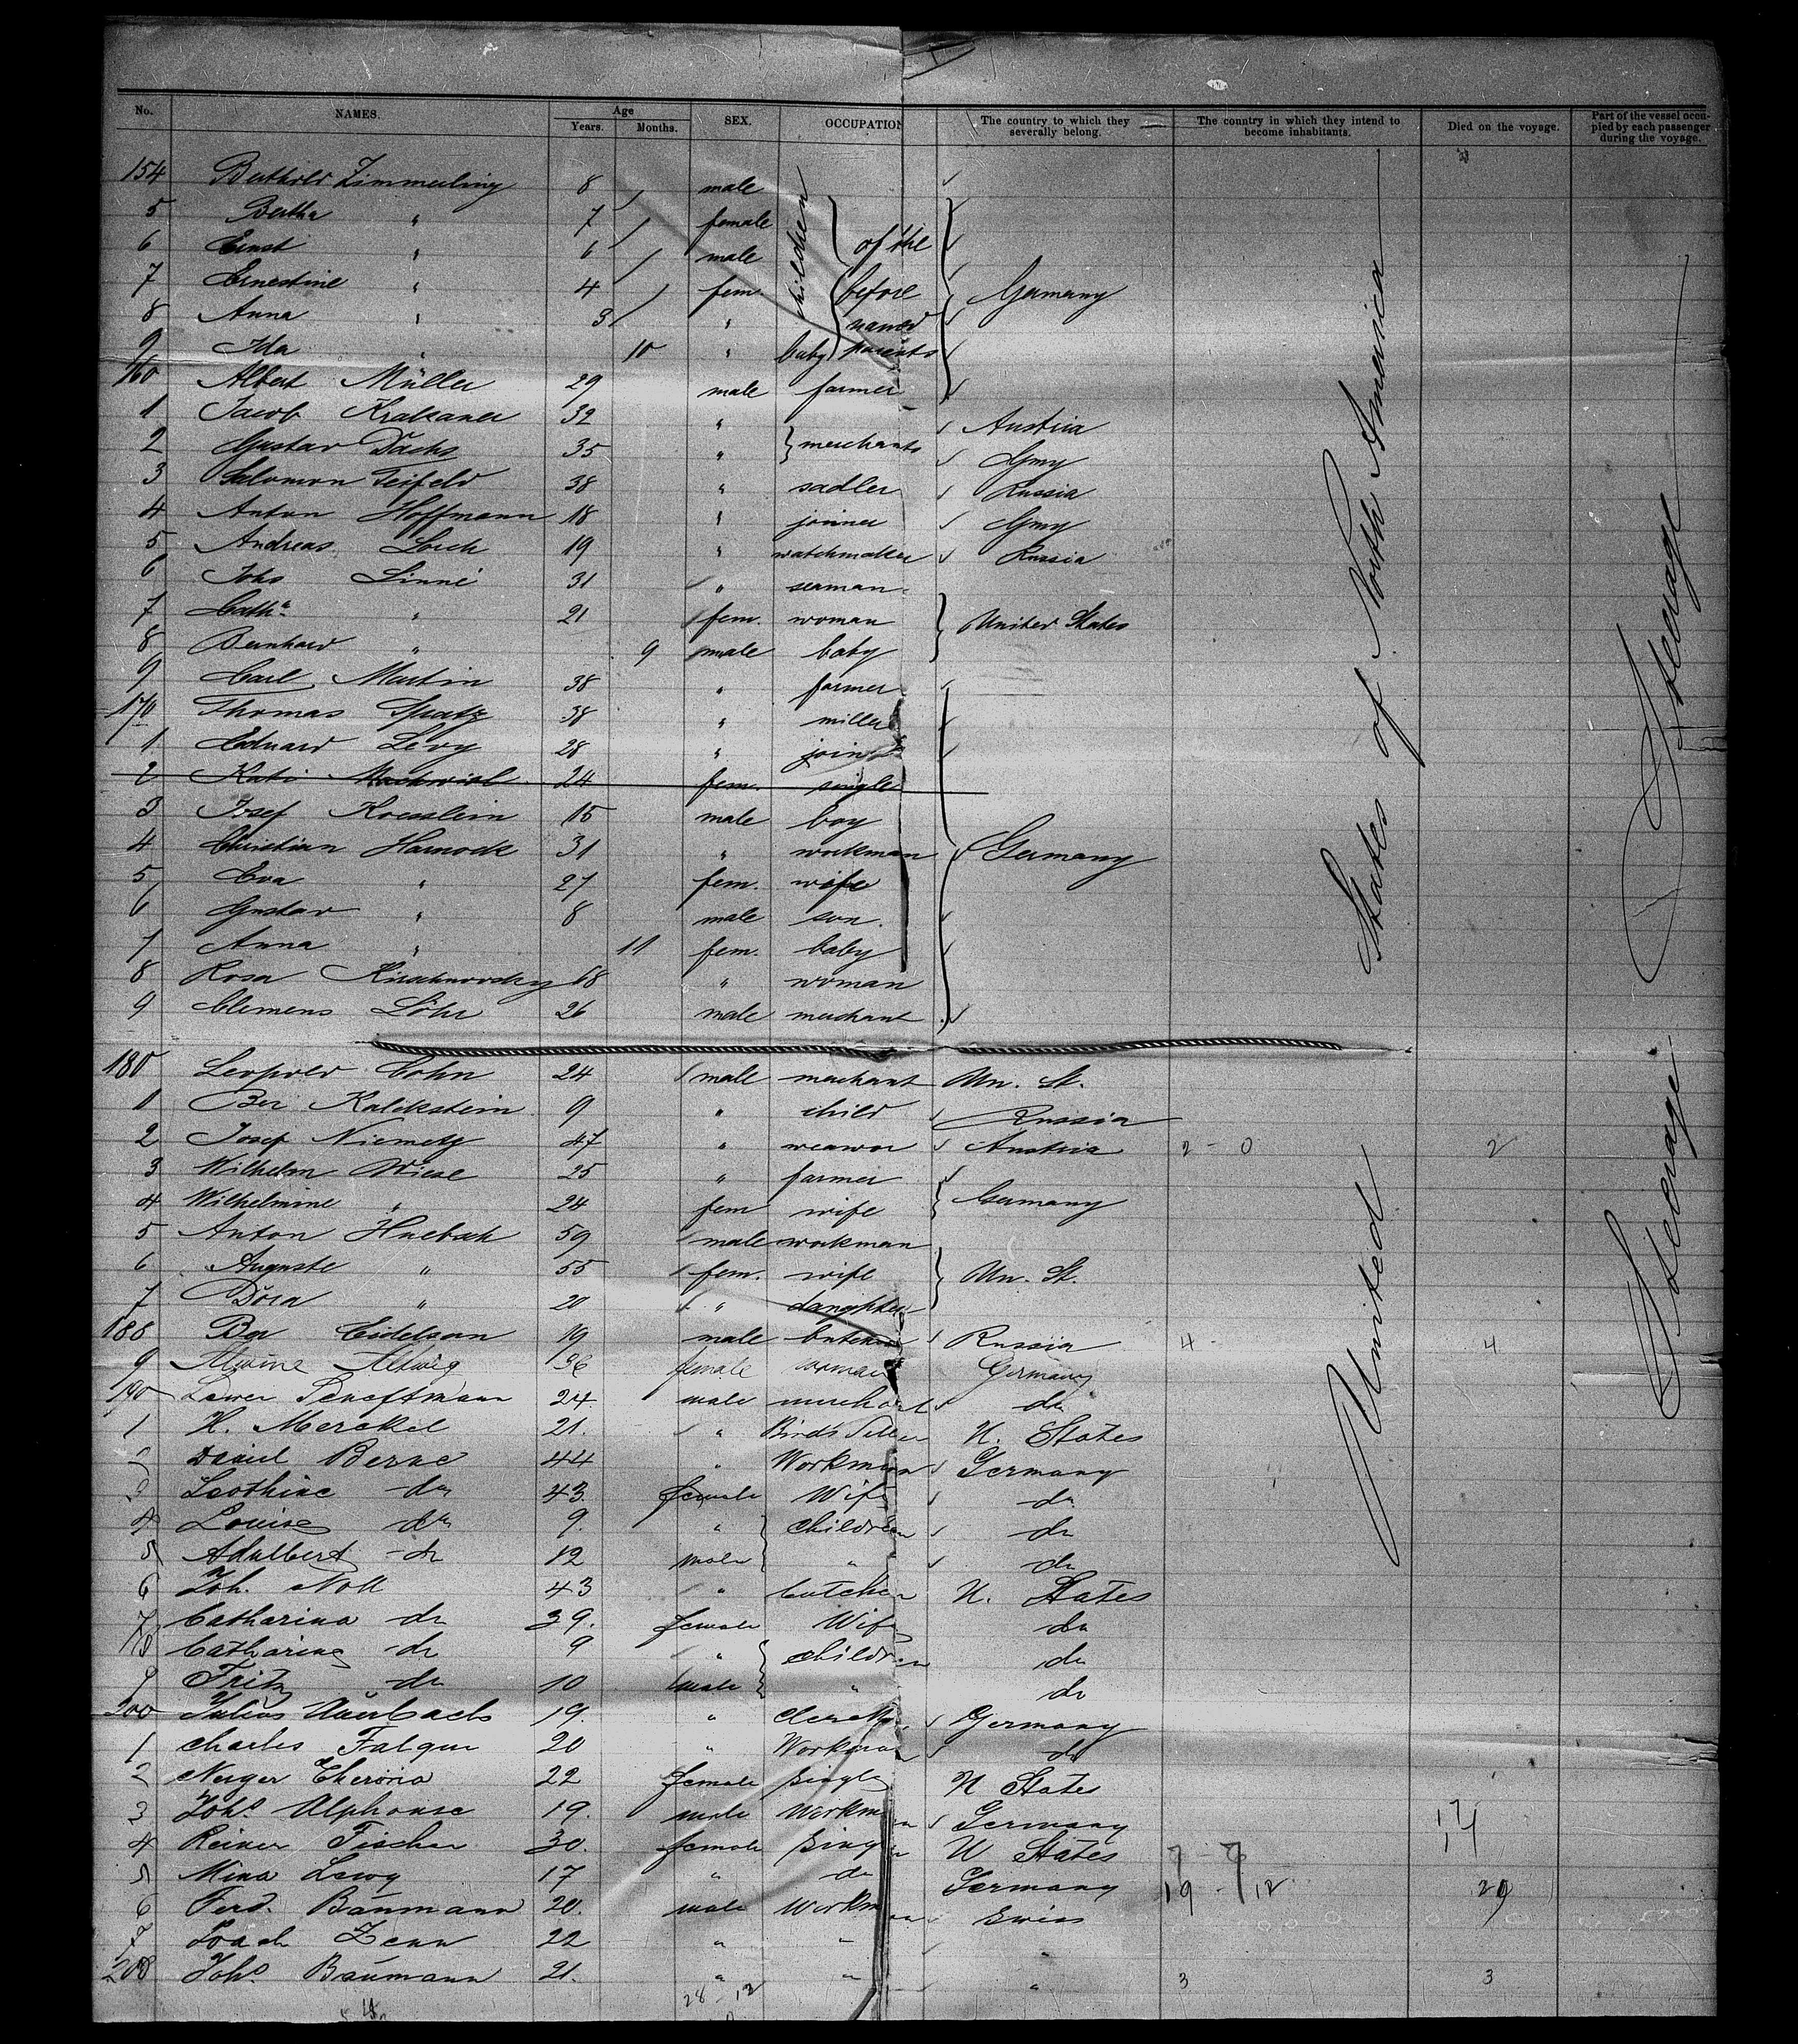 No. NAMES. Age Years. Months. SEX. OCCUPATION The country to which they severally belong. The country in which they intend to become inhabitants. Died on the voyage. Part of the vessel occupied by each passenger during the voyage.
154 Berthold Zimmerling 8 male
5 Bertha " 7 female children of the
6 Ernst " 6 male
7 Ernestine " 4 fem. before Germany
8 Anna " 3 " named
9 Ida " 10 " baby parents
160 Albert Müller 29 male farmer
1 Jacob Krakauer 32 " merchants Austria
2 Gustav Dachs 35 " Gmy
3 Salomon 38 " sadler Russia
4 Anton Hoffmann 18 " joiner Gmy
5 Andreas 19 " watchmaker Russia
6 Johs Linné 31 " seaman
7 Cath. " 21 fem. woman United States
8 Bernhard " 9 male baby
9 Carl Martin 38 " farmer
170 Thomas Spatz 38 " miller
1 Eduard Levy 28 " join
2 Kati 24 fem. single
3 Josef Koesslein 15 male boy
4 Christian Harnock 31 " workman Germany
5 Eva " 27 fem. wife
6 Gustav " 8 male son.
7 Anna " 11 fem. baby
8 Rosa 68 " woman
9 Clemens Löhr 26 male merchant
180 Leopold Cohn 24 male merchant Un. St.
1 Ber Kalikstein 9 " child Russia
2 Josef Niemetz 47 " weawer Austria 2 - 0 2
3 Wilhelm Wiese 25 " farmer
4 Wilhelmine " 24 fem wife Germany
5 Anton Huebsch 59 male workman
6 Auguste " 55 fem. wife Un. St.
7 Dora " 20 " daughter
188 Ber Eidelson 19 male butcher Russia 4 4
9 Alwine 36 female woman Germany
190 24 male merchant do
1 H. Merckel 21. " Birds Seller U. States
2 Daniel Berne 44 " Workman Germany
3 do 43. female Wife do
4 Louise do 9. " Children do
5 Adalbert do 12 male " do
6 Joh. Noll 43 " butcher U. States
7 Catharina do 39. female Wife do
198 Catharina do 9 " Children do
9 Fritz do 10 male " do
200 Julius Auerbach 19. " Clerk Germany
1 Charles 20 " Workman do
2 22 female Single U States
3 Johs Alphonse 19. male Workman Germany 17
4 Reiner Fischer 30. female Single U States 7 - 7 14
5 Mina Lewy 17 " do Germany 19 - 12 29
6 Ferd. Baumann 20. male Workman Swiss
7 Zenn 22 " " "
208 Johs Baumann 21. " " " 3 3
28 - 12
United States of North America
Steerage Steerage